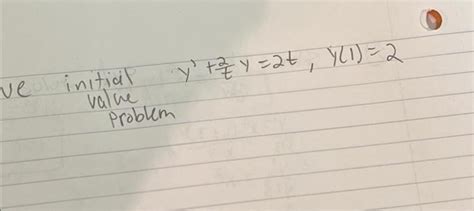 ve initial y' + 2/t y = 2t, y(1) = 2
value
problem